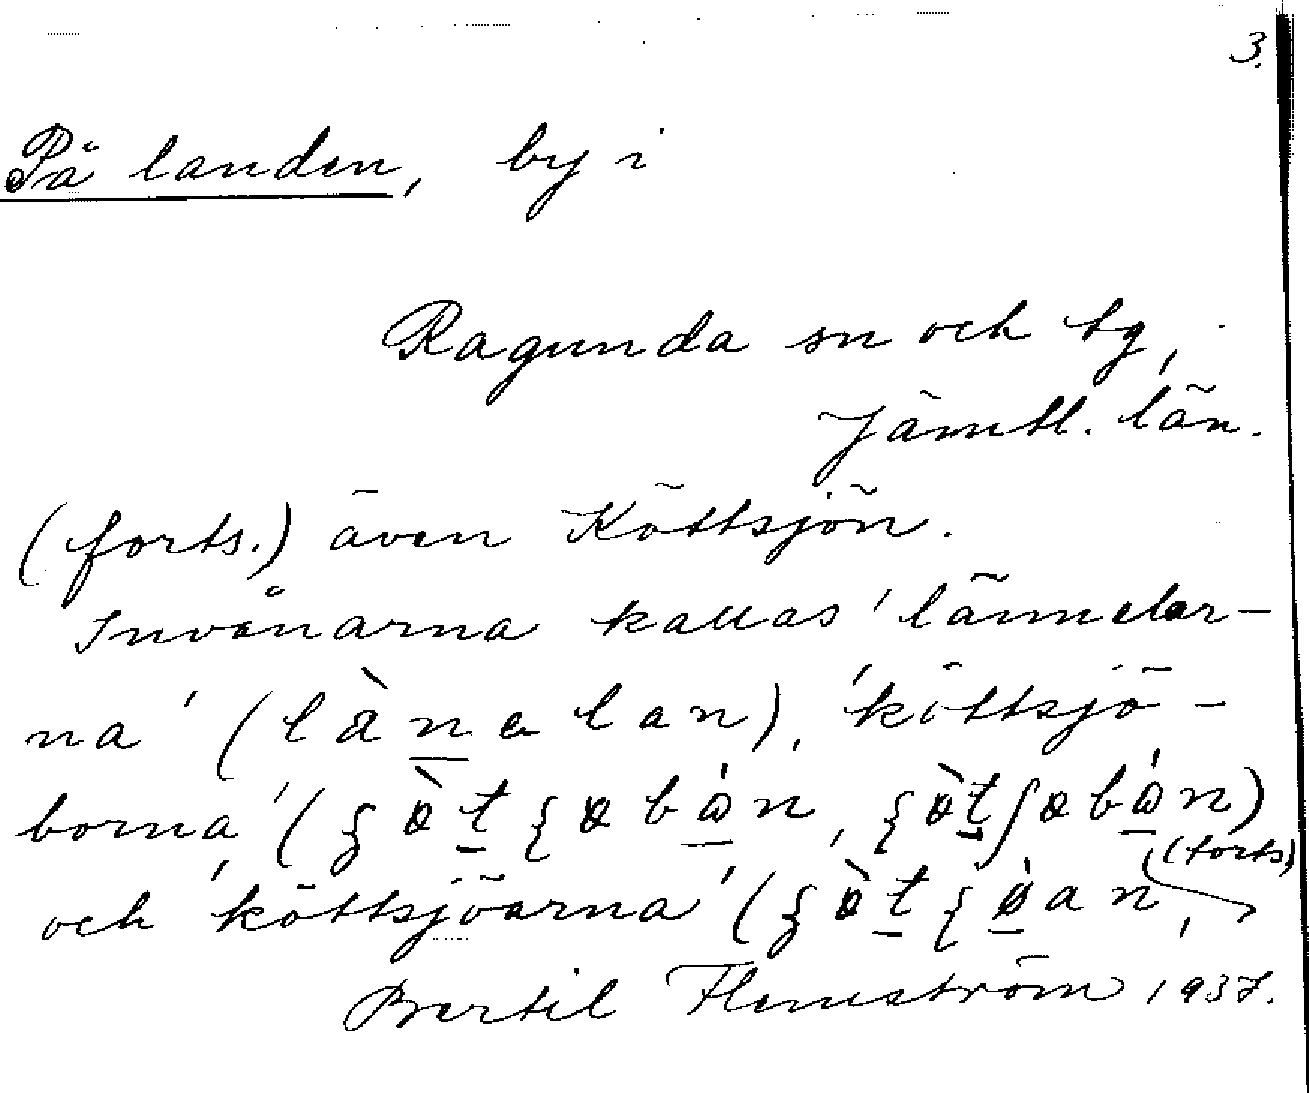 3.
På landen, by i
Ragunda sn och tg,
Jämtl. län.
(forts.) även Köttsjön.
Invånarna kallas 'lännelar-
na' (là̱nalan), 'köttsjö-
borna'
(forts)
och 'köttsjöarna'
Bertil Flemström 1937.